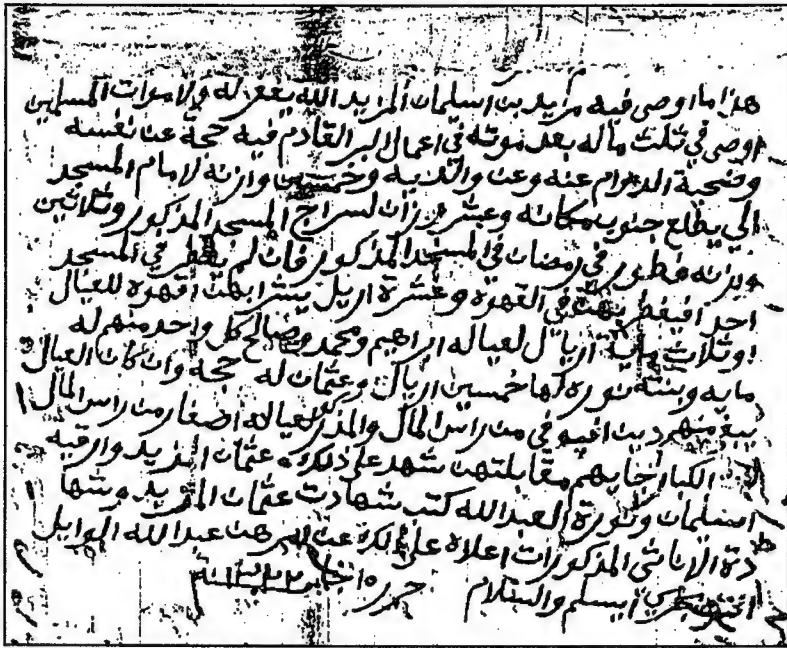 هذا ما اوصى فيه مزيد بن اسليمان المزيد الله يغفر له ولاموات المسلمين
اوصى في ثلث ماله بعد موته في اعمال البر القادم فيه حجة عن نفسه
وضحية الدوام عنه وعن والديه وخمسين وازنه لامام المسجد
الي يطلع جنوب مكانه وعشر وزان لسراج المسجد المذكور وثلاثين
وزنه فطور في رمضان في المسجد المذكور فان لم يفطر في المسجد
احد افيفطر بهن في القهوة وعشرة اريل يشرابهن اقهوه للعيال
اوثلاث ماية اريال لعياله ابراهيم ومحمد وصالح كل واحد منهم له
مايه وبنته نوره لها خمسين اريال وعثمان له حجه وان كان العيال
دين افيوفي من راس المال والمذكر لعياله اصغار من راس المال
الكبار مقابلتهن شهد على ذلك عثمان المزيد وارقيه
اسليمان ونورة العبدالله كتب شهادت عثمان المزيد وشها
دة الاناثى المذكورات اعلاه على ذلك عن امرهن عبدالله الوايل
ايسلم والسلام حرره